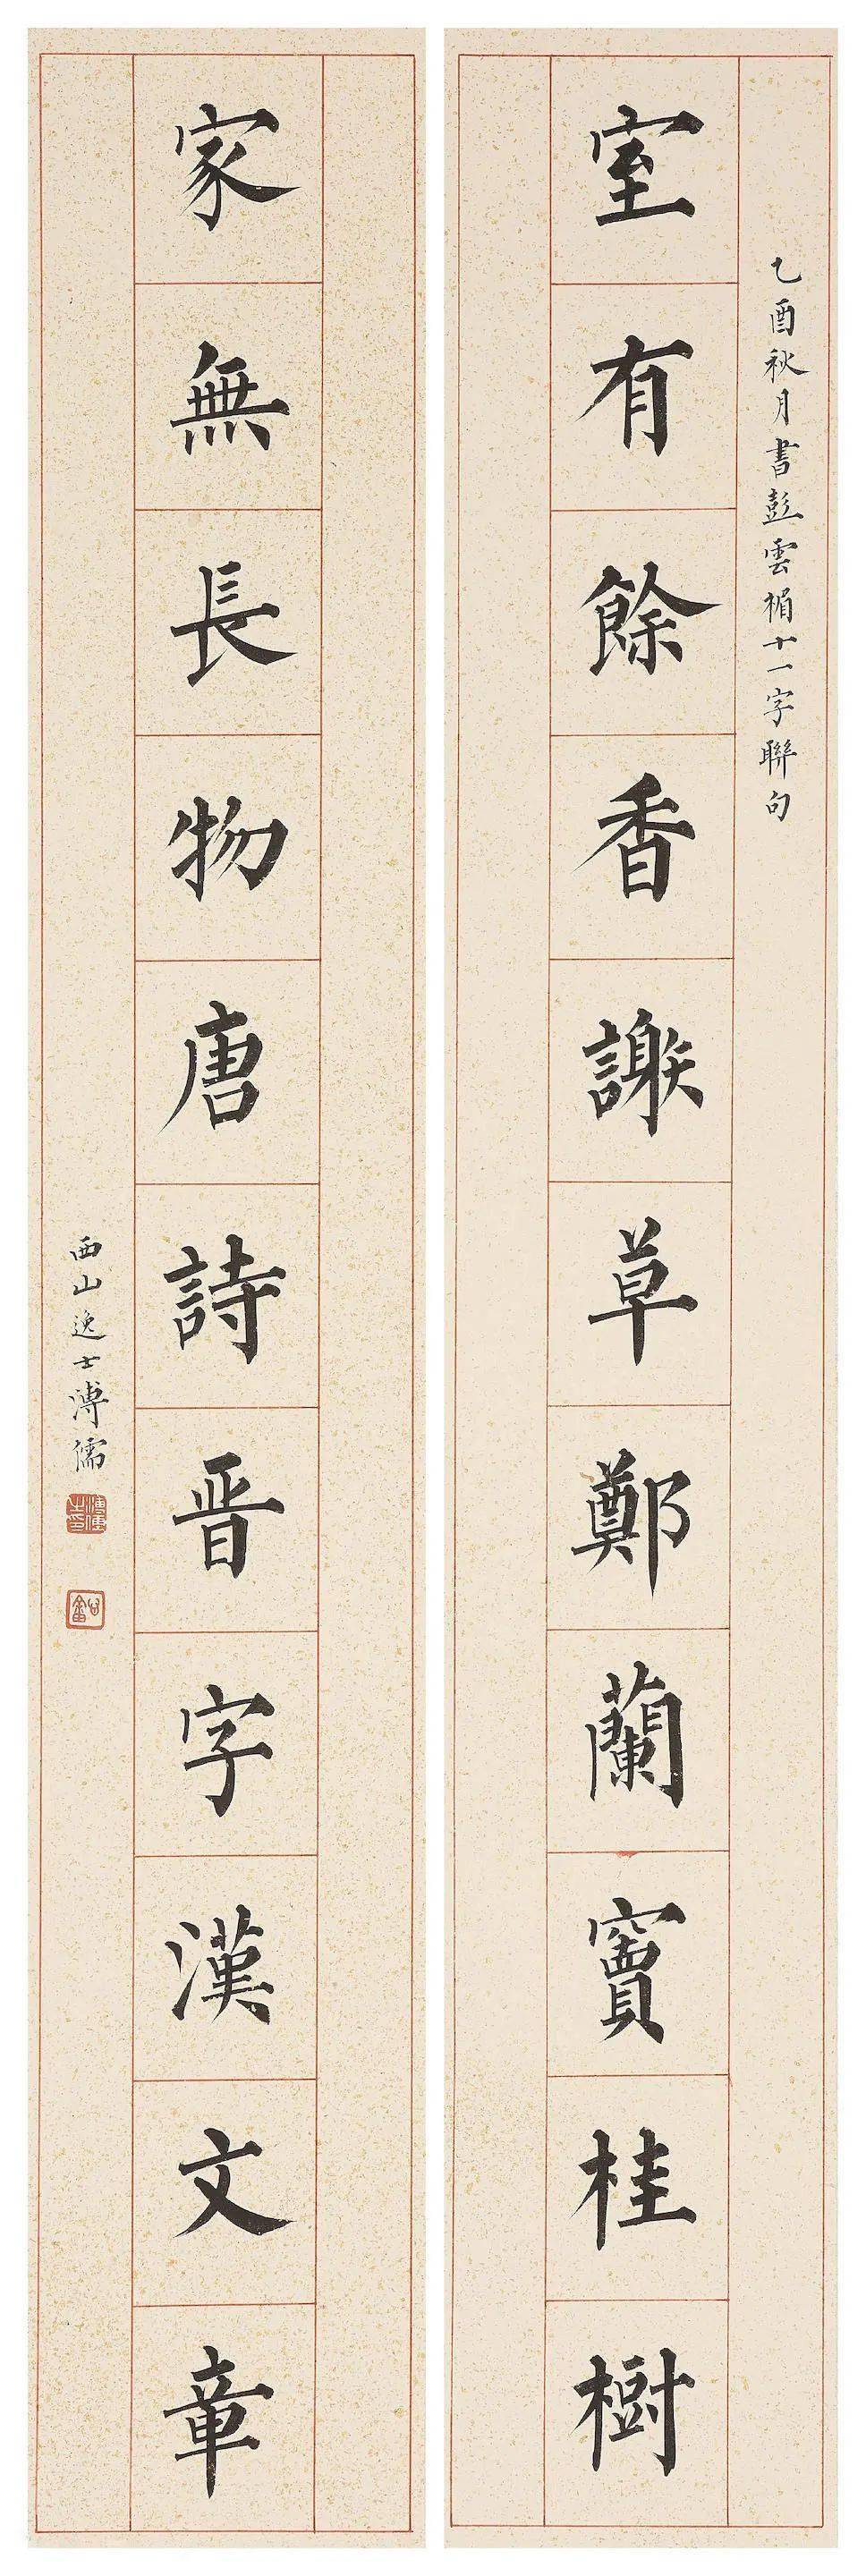 乙酉秋月書彭雲楣十一字聯句
室有餘香謝草鄭蘭竇桂樹
家無長物唐詩晉字漢文章
西山逸士溥儒
溥儒之印